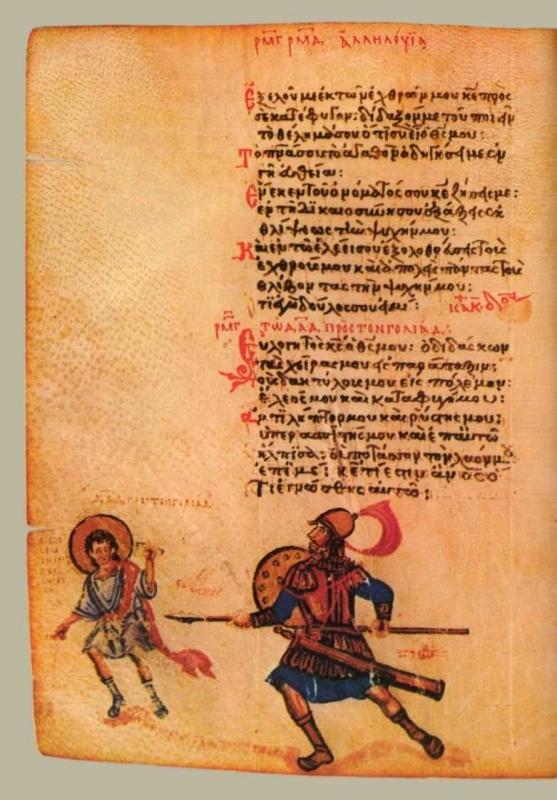 ρμγ ρμδ ἀλληλούϊα
Ἐξελοῦ με ἐκ τῶν ἐχθρῶν μου κε πρὸς
σὲ κατέφυγον· δίδαξόν με τοῦ ποιεῖν
τὸ θέλημά σου ὅτι σὺ εἶ ὁ θς μου:
Τὸ πνα σου τὸ ἀγαθὸν ὁδηγήσει με ἐν
γῆ εὐθεία:
Ἕνεκεν τοῦ ὀνόματός σου κε ζήσεις με:
ἐν τῆ δικαιοσύνη σου ἐξάξεις ἐκ
θλίψεως τὴν ψυχήν μου:
Καὶ ἐν τῶ ἐλέει σου ἐξολοθρεύσεις τοὺς
ἐχθρούς μου καὶ ἀπολεῖς πάντας τοὺς
θλίβοντας τὴν ψυχήν μου:
τι ἐγὼ δοῦλός σου εἰμί:
ρμγ Τῶ δαδ πρὸς τὸν γολιάδ:
Εὐλογητὸς κς ὁ θς μου· ὁ διδάσκων
τὰς χεῖρας μου εἰς παράταξιν·
τοὺς δακτύλους μου εἰς πόλεμον:
Ἔλεός μου καὶ καταφυγή μου:
ἀντιλήπτωρ μου καὶ ῥύστης μου:
ὑπερασπιστής μου καὶ ἐπ αὐτῶ
ἤλπισα· ὁ ὑποτάσσων τὸν λαόν μου
ὑπ ἐμέ: κε τί ἐστιν ανος ὅ
τι ἐγνώσθης αὐτῶ:
δαδ προς τον γολιαδ